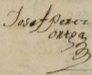 Josef Perez
ortega